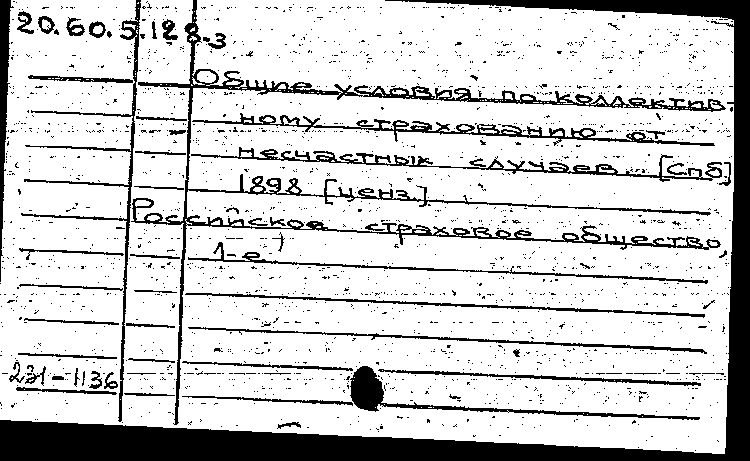 20.60.5.128-3
Общие условия по коллектив-
ному страхованию от
несчастных случаев... [Спб]
1898 [ценз.]
Российское страховое общество,
1-е
231-1136